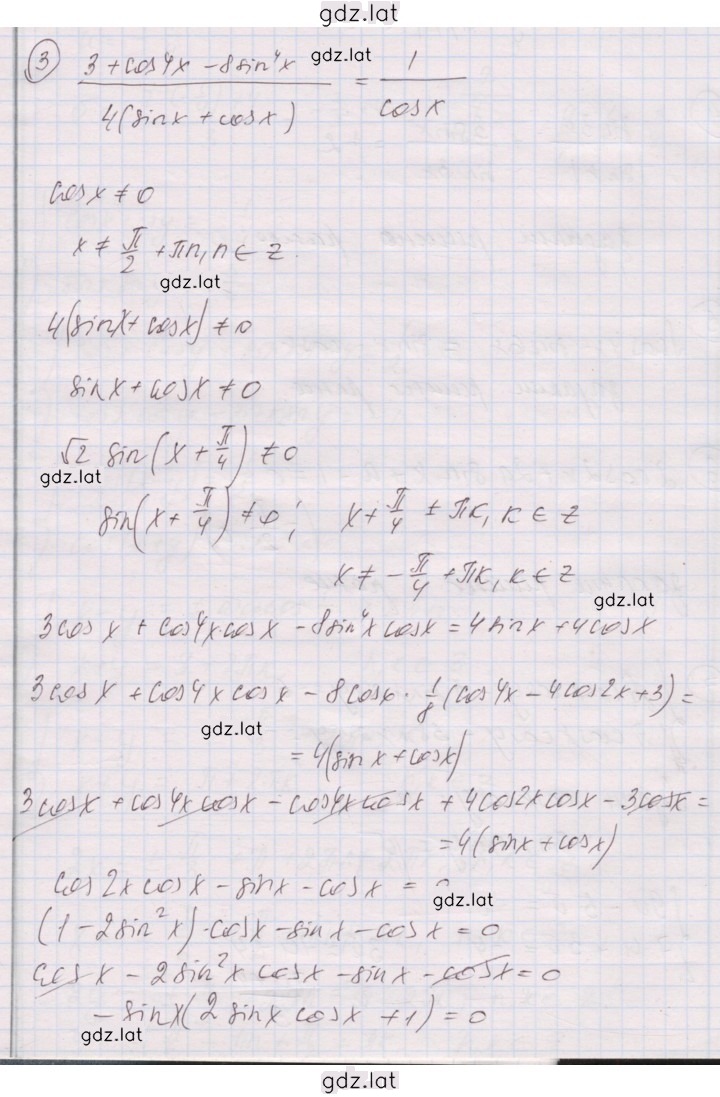 gdz.lat
③ (3 + cos4x - 8sin⁴x) / (4(sinx + cosx)) = 1 / cosx
gdz.lat
cosx ≠ 0
x ≠ π/2 + πn, n ∈ Z.
gdz.lat
4(sinx + cosx) ≠ 0
sinx + cosx ≠ 0
√2 sin(x + π/4) ≠ 0
gdz.lat
sin(x + π/4) ≠ 0; x + π/4 ≠ πk, k ∈ Z
x ≠ -π/4 + πk, k ∈ Z
gdz.lat
3cosx + cos4x·cosx - 8sin⁴x cosx = 4sinx + 4cosx
3cosx + cos4x cosx - 8cosx · 1/8 (cos4x - 4cos2x + 3) =
gdz.lat
= 4(sinx + cosx)
3cosx + cos4x cosx - cos4x cosx + 4cos2x cosx - 3cosx =
= 4(sinx + cosx)
cos2x cosx - sinx - cosx =
gdz.lat
(1 - 2sin²x)·cosx - sinx - cosx = 0
cosx - 2sin²x cosx - sinx - cosx = 0
- sinx(2sinx cosx + 1) = 0
gdz.lat
gdz.lat